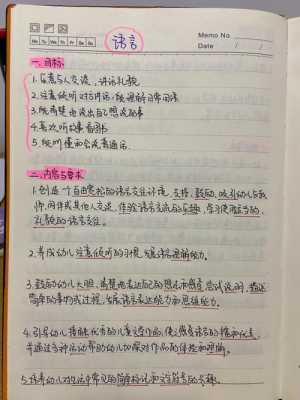 Memo No.
Mo Tu We Th Fr Sa Su
Date / /
语言
一. 目标
1. 乐意与人交谈，讲话礼貌
2. 注意倾听对方讲话，能理解日常用语
3. 能清楚地说出自己想说的事
4. 喜欢听故事看图书
5. 能听懂和会说普通话
二. 内容与要求
1. 创造一个自由宽松的语言交往环境，支持、鼓励、吸引幼儿与教
师、同伴或其他人交谈，体验语言交流的乐趣，学习使用适当的、
礼貌的语言交往。
2. 养成幼儿注意倾听的习惯，发展语言理解能力。
3. 鼓励幼儿大胆、清楚地表达自己的想法和感受，尝试说明、描述
简单的事物或过程，发展语言表达能力和思维能力。
4. 引导幼儿接触优秀的儿童文学作品，使之感受语言的丰富和优美，
并通过多种活动帮助幼儿加深对作品的体验和理解。
5. 培养幼儿对生活中常见的简单标记和文字符号的兴趣。